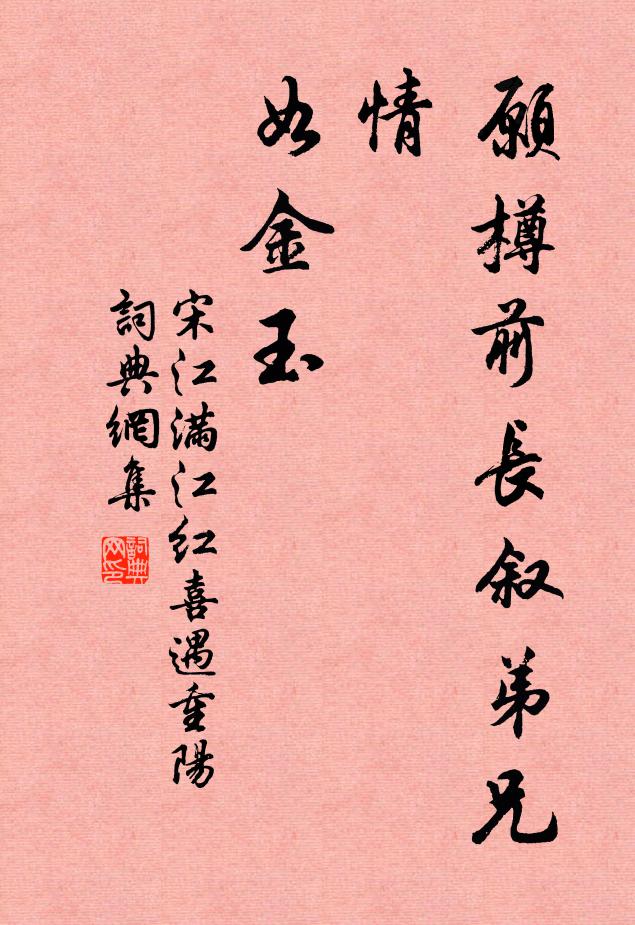 願樽前長叙弟兄
情
如金玉
宋江滿江红喜遇重陽
詞典網集
詞典网印